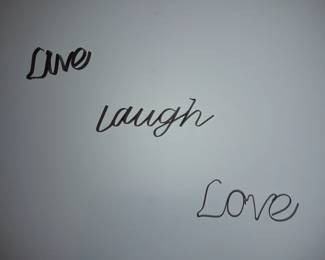 Live
Laugh
Love